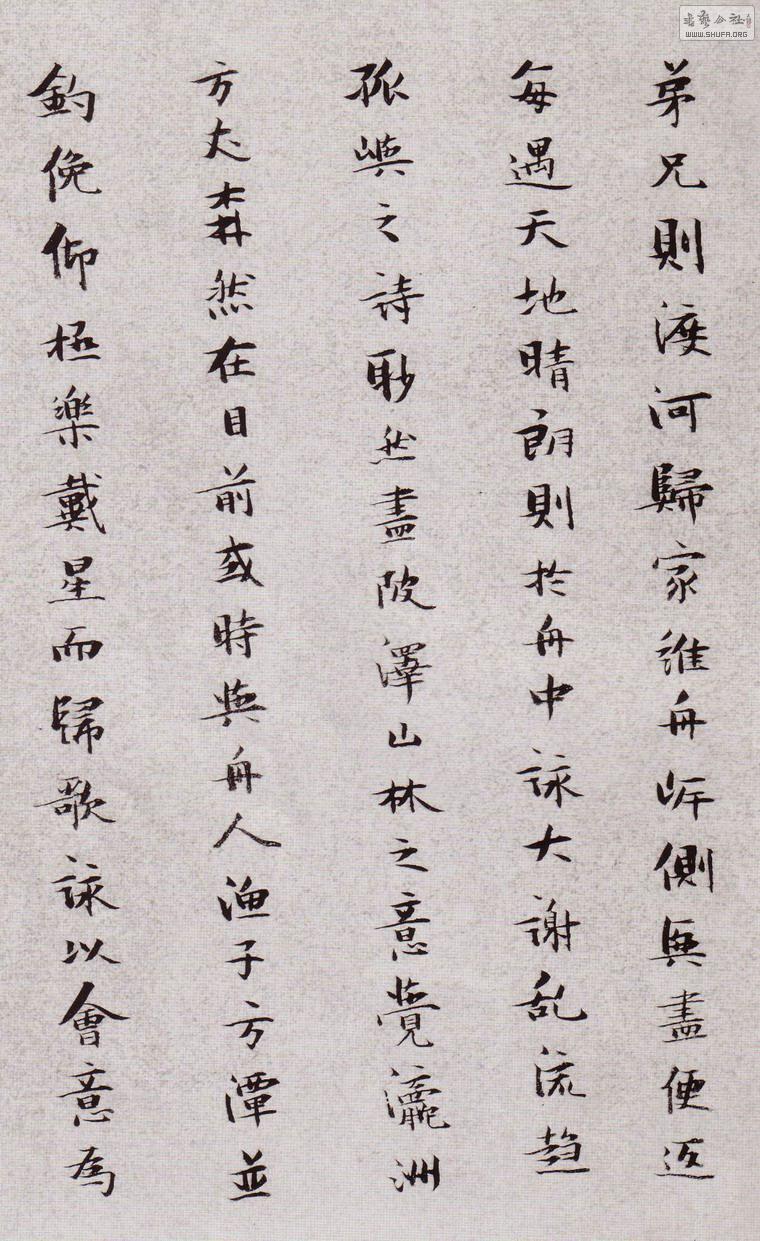 弟兄則渡河歸家維舟岸側興盡便返
每遇天地晴朗則於舟中詠大謝乱流趋
孤嶼之詩眇然盡陂澤山林之意覺瀛洲
方丈森然在目前或時與舟人漁子方潭並
釣俛仰極樂戴星而歸歌詠以會意為
書藝公社
WWW.SHUFA.ORG